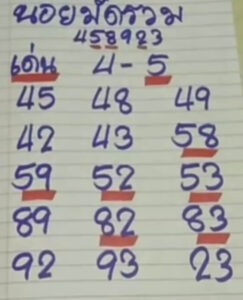 นอยมัดรวม
458923
เด่น 4-5
45 48 49
42 43 58
59 52 53
89 82 83
92 93 23